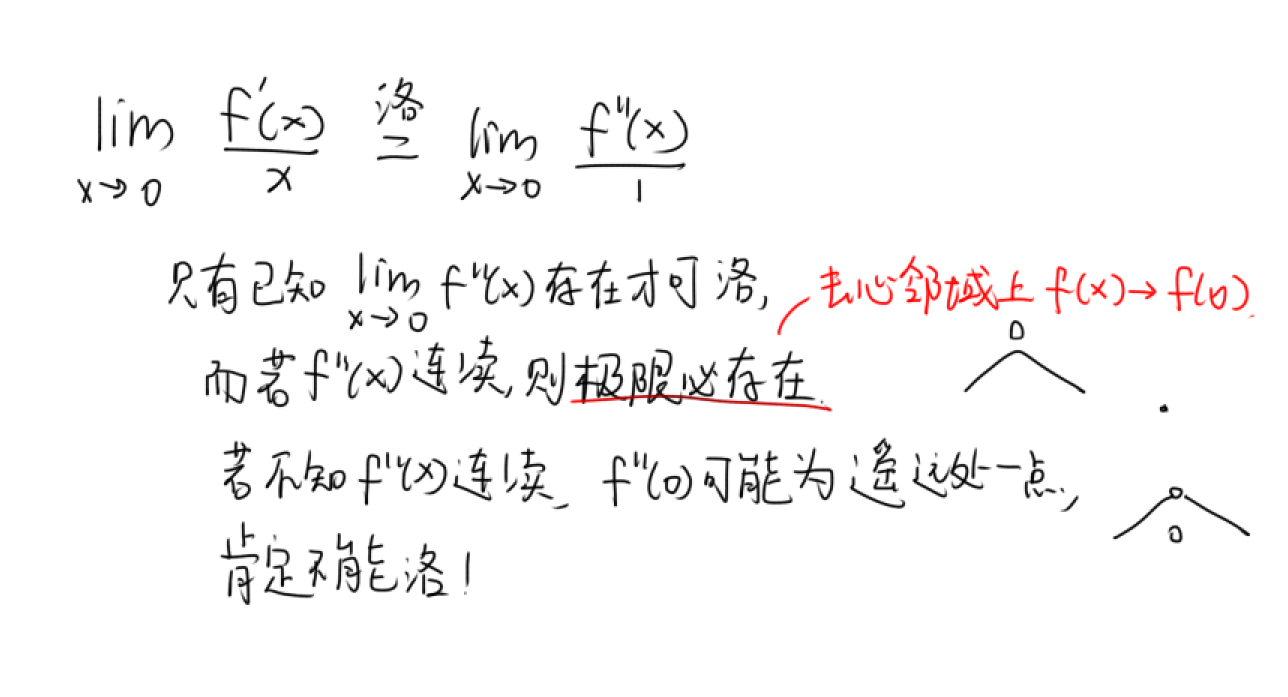 lim x→0 f'(x)/x 洛= lim x→0 f''(x)/1
只有已知 lim x→0 f''(x)存在才可洛,
去心邻域上 f(x)→f(0).
而若f''(x)连续,则极限必存在.
0
若不知f''(x)连续, f''(0)可能为遥远处一点,
0
0
肯定不能洛!